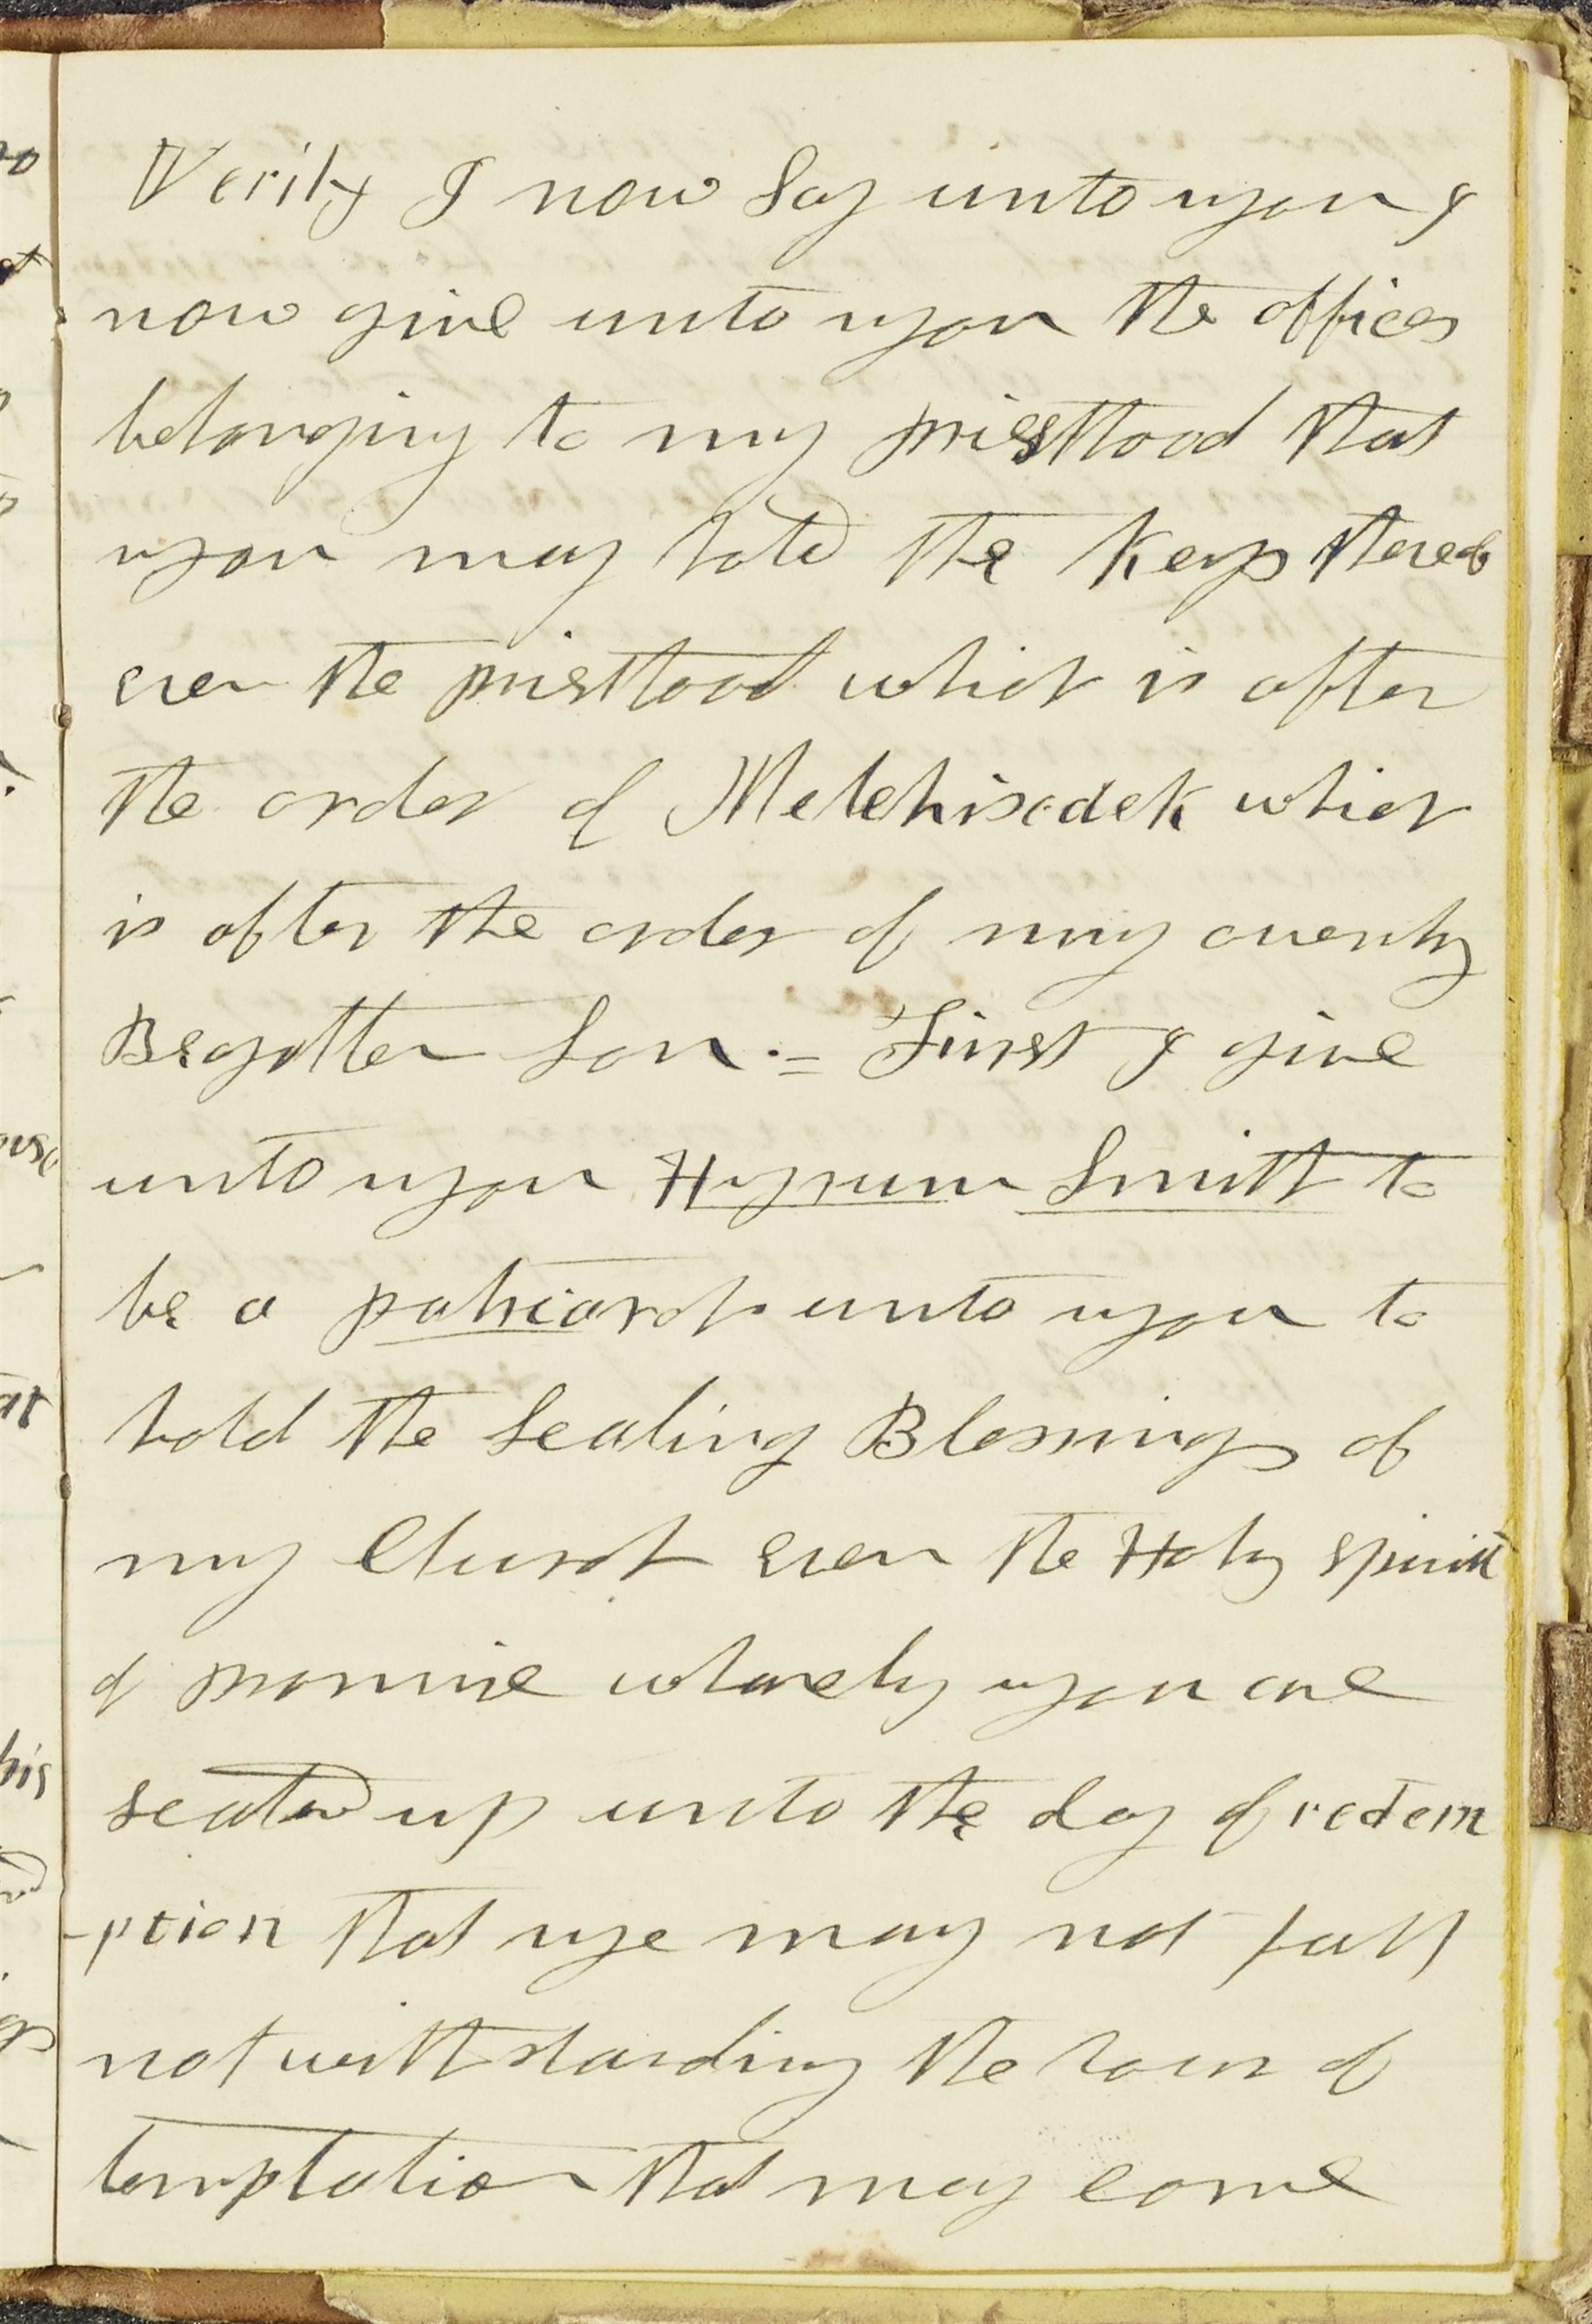 Verily I now Say unto you I
now give unto you the offices
belonging to my priesthood that
you may hold the Keys thereof
even the priesthood which is after
the order of Melchisedek which
is after the order of my ownly
Begotten Son. = First I give
unto you Hyrum Smith to
be a patriarch unto you to
hold the Sealing Blessings of
my Church even the Holy spirit
of promise whereby you are
sealed up unto the day of redem
-ption that ye may not fall
notwithstanding the hour of
temptation that may come